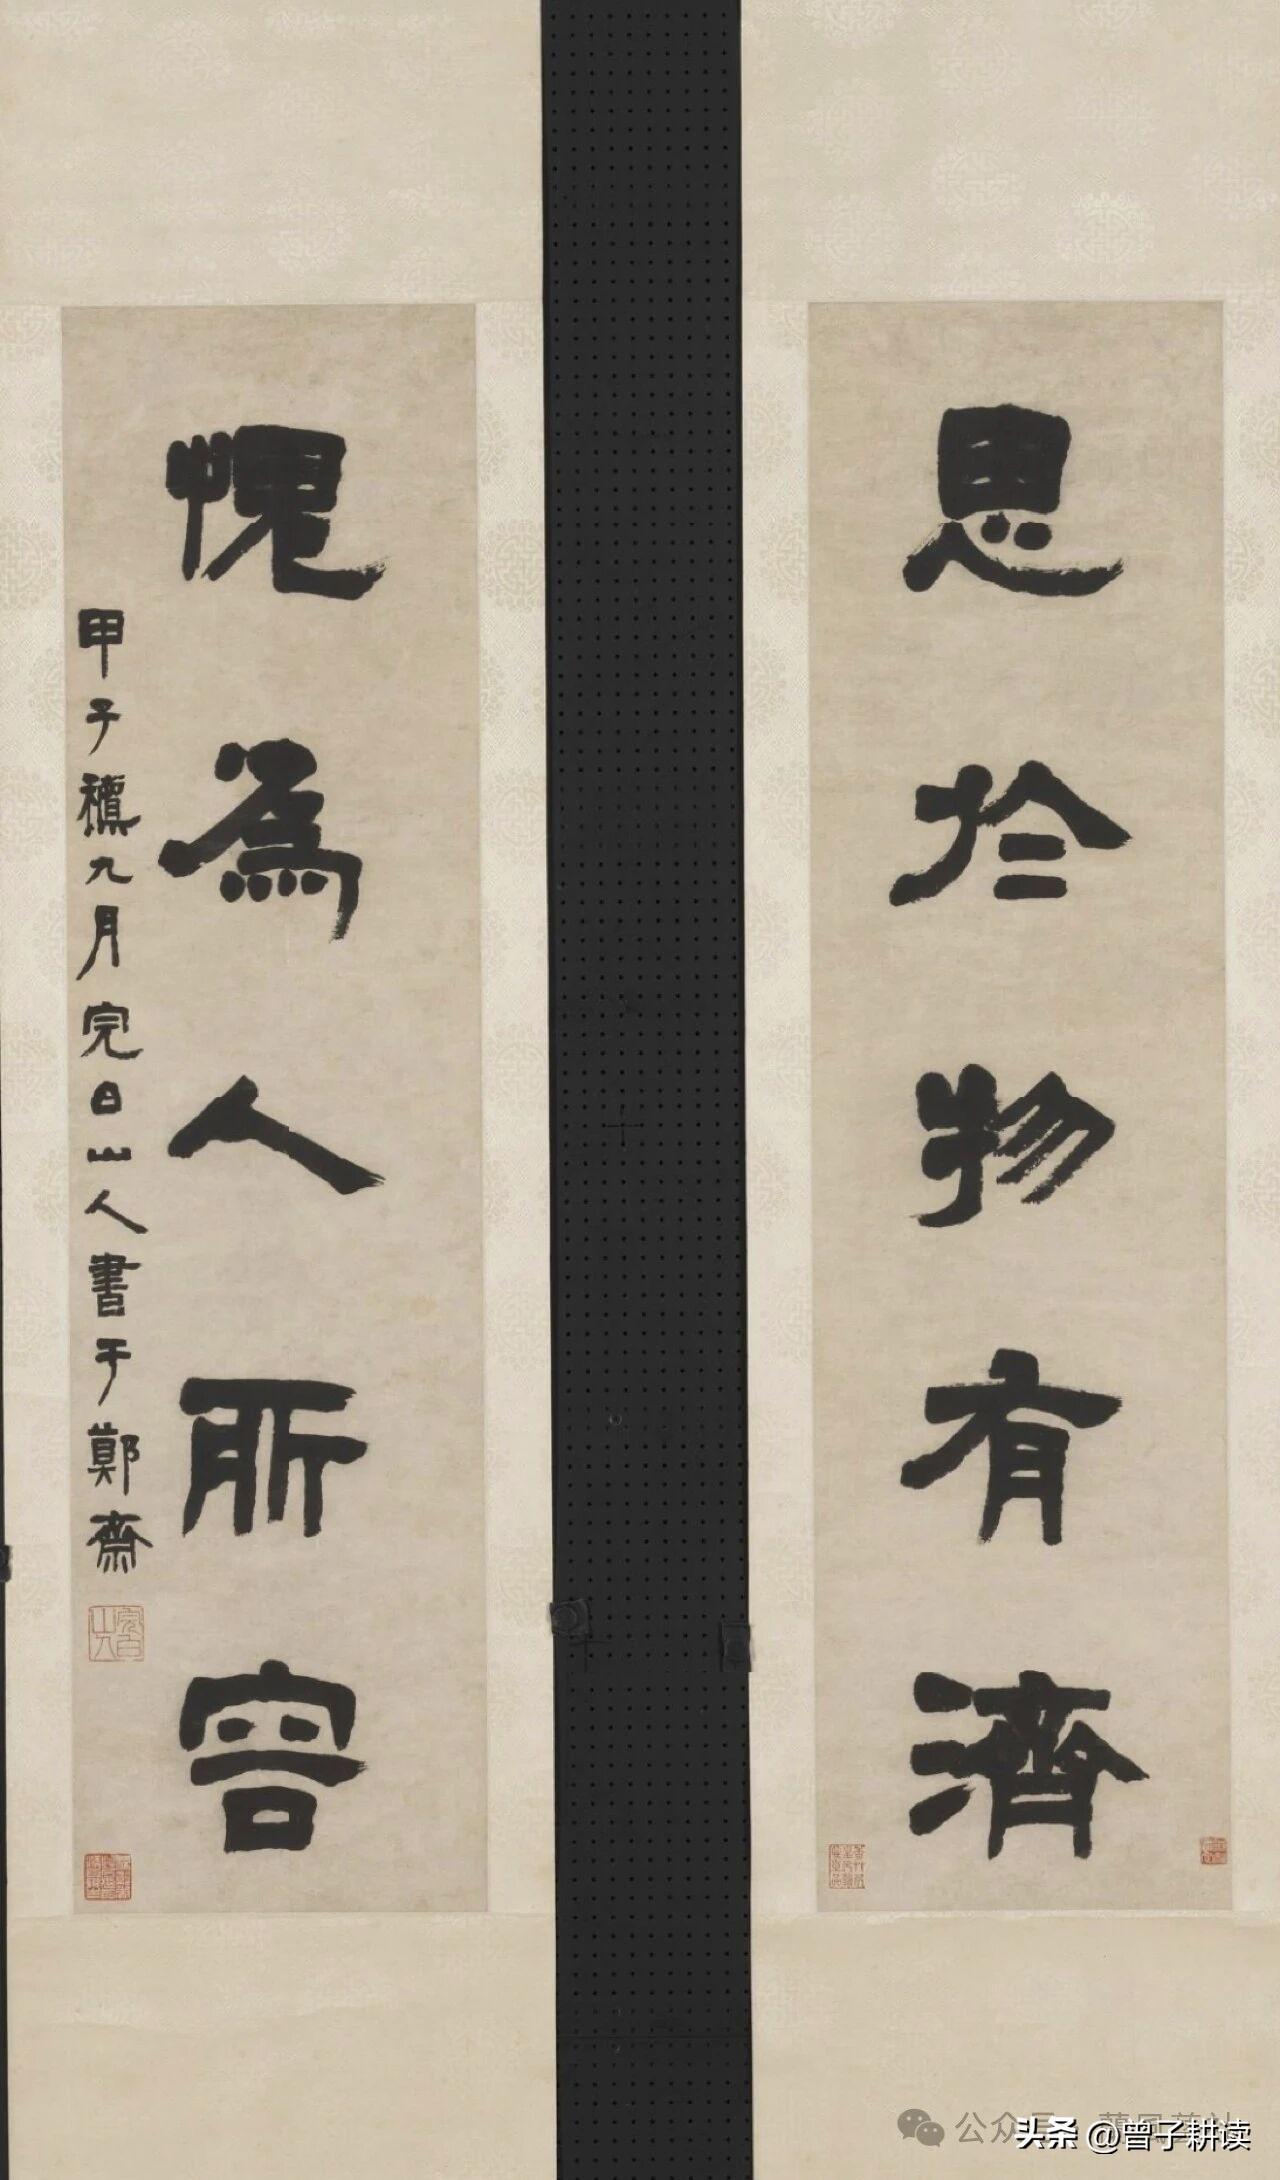 思於物有濟
愧為人所容
甲子穐九月完白山人書于鄭齋
完白山人
公众号
头条 @曾子耕读